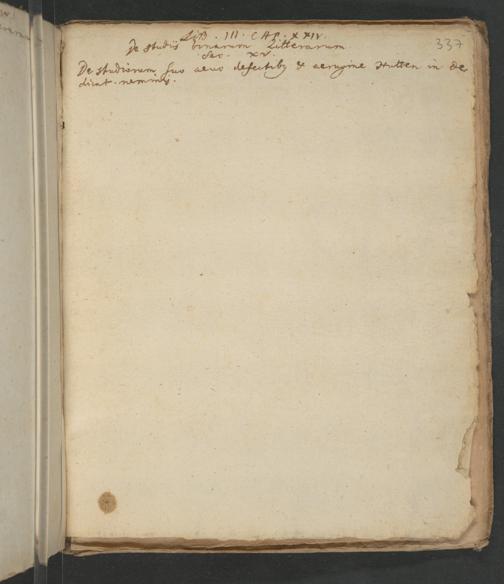 LIB. III. CAP. XXIV. 337
De studiis bonarum Litterarum
Sec. XV.
De studiorum suo aevo defectibq & aerugine Hutten in de
dicat. neminis.